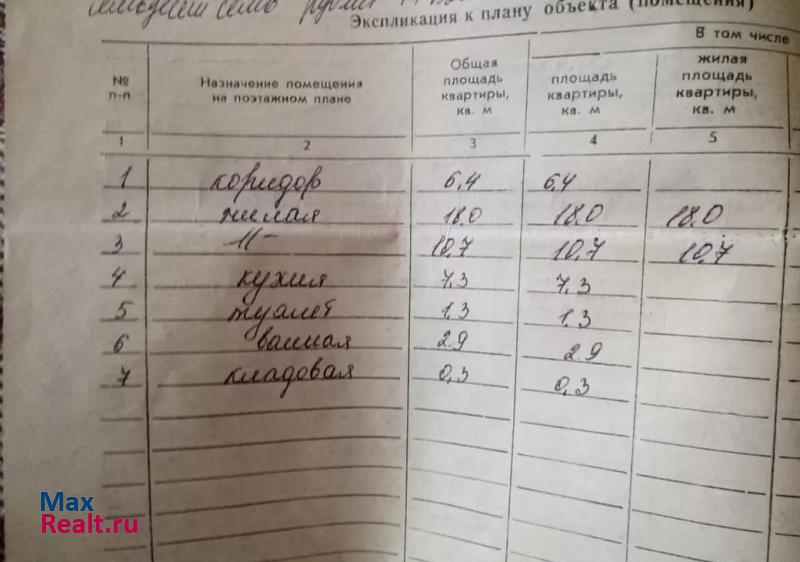 семьдесят семь рублей
Экспликация к плану объекта (помещения)
№ п-п Назначение помещения на поэтажном плане Общая площадь квартиры, кв. м В том числе
площадь квартиры, кв. м жилая площадь квартиры, кв. м
1 2 3 4 5
1 коридор 6,4 6,4
2 жилая 18,0 18,0 18,0
3 -11- 10,7 10,7 10,7
4 кухня 7,3 7,3
5 туалет 1,3 1,3
6 ванная 2,9 2,9
7 кладовая 0,3 0,3
Max
Realt.ru